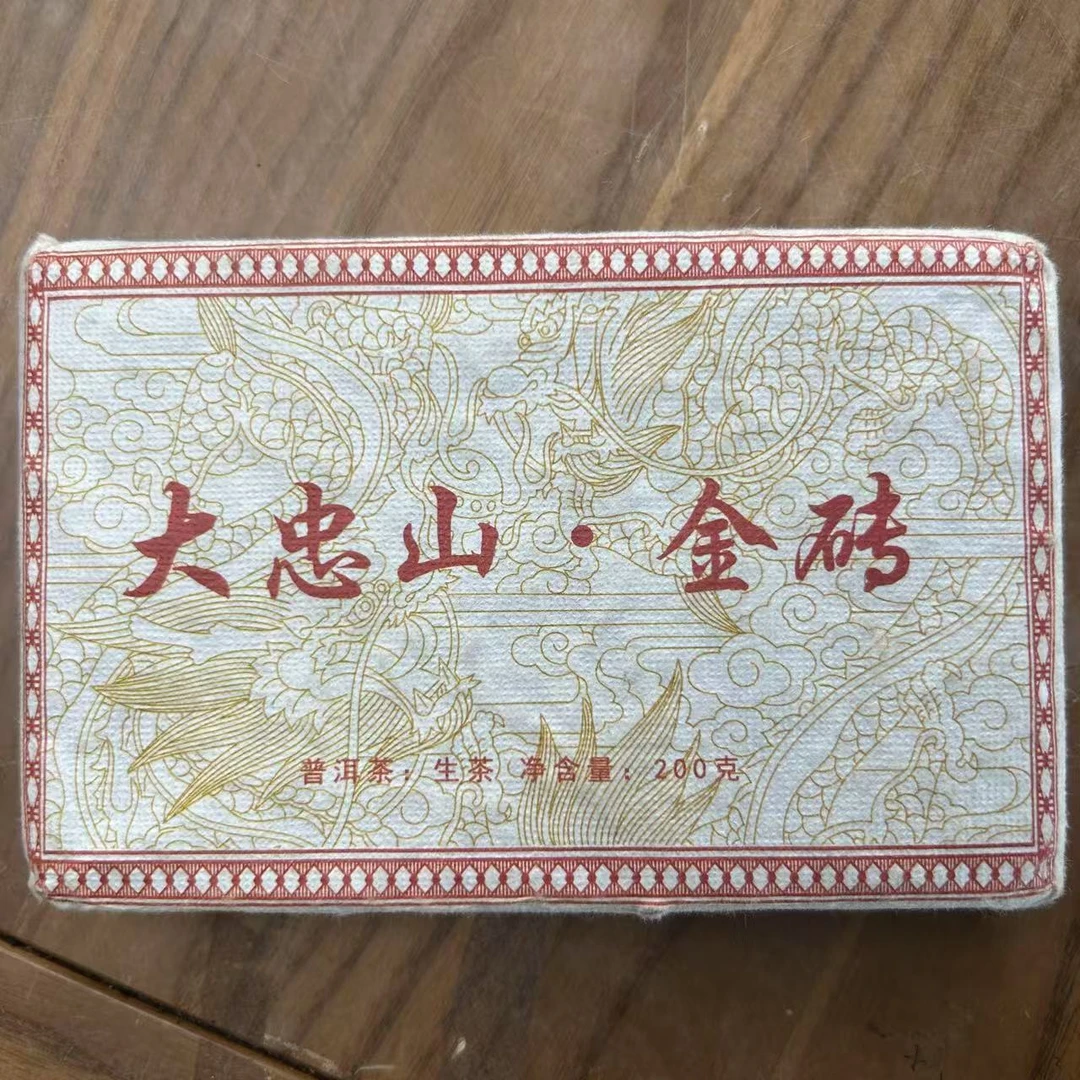 大忠山·金砖
普洱茶：生茶 净含量：200克